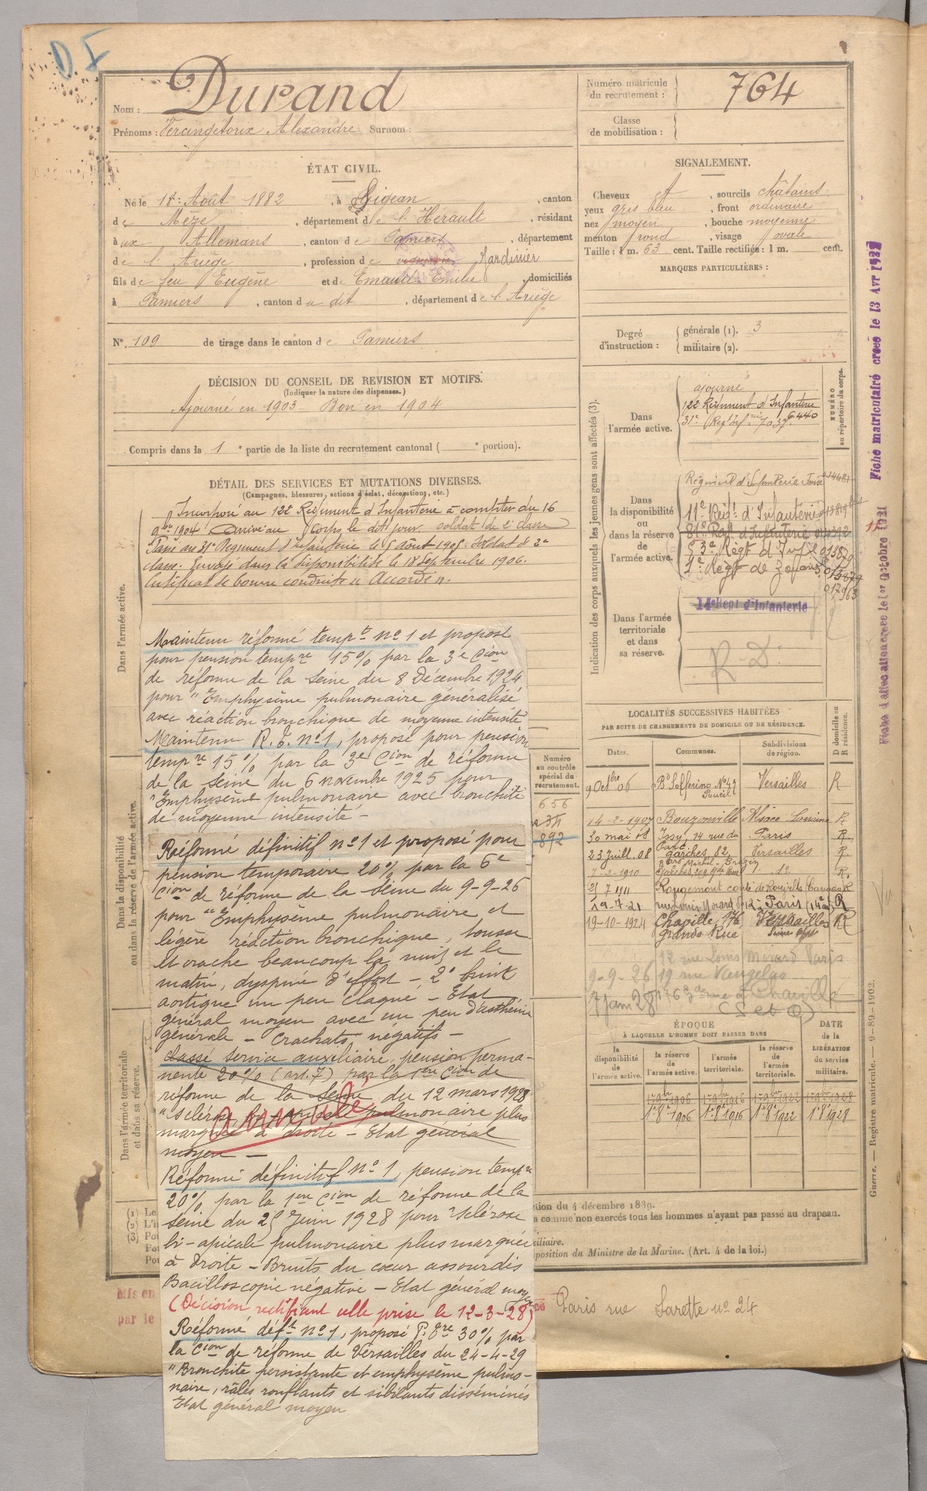 Nom : Durand
Prénoms : Vercingétorix Alexandre Surnom :
Numéro matricule
du recrutement : 764
Classe
de mobilisation :
ÉTAT CIVIL.
Né le 18 Août 1882, à Gigean, canton
de Mèze, département de l'Hérault, résidant
aux Allemans, canton de Pamiers, département
de l'Ariège, profession de Jardinier
fils de feu Eugène et de Emilie, domiciliés
à Pamiers, canton du dit, département de l'Ariège
N° 109 de tirage dans le canton de Pamiers
SIGNALEMENT.
Cheveux sourcils châtains
yeux gris bleu, front ordinaire
nez moyen, bouche moyenne
menton rond, visage ovale
Taille : 1 m. 63 cent. Taille rectifiée : 1 m. cent.
MARQUES PARTICULIÈRES :
Degré
d'instruction :
générale (1). 3
militaire (2).
DÉCISION DU CONSEIL DE REVISION ET MOTIFS.
(Indiquer la nature des dispenses.)
Ajourné en 1903 Bon en 1904
Compris dans la 1e partie de la liste du recrutement cantonal ( e portion).
DÉTAIL DES SERVICES ET MUTATIONS DIVERSES.
(Campagnes, blessures, actions d'éclat, décorations, etc.)
Incorporé au 122e Régiment d'Infanterie à compter du 16
9bre 1904 Arrivé au Corps le dit jour soldat de 2e classe
Passé au 31e Régiment d'Infanterie le 5 Août 1905 Soldat de 2e
classe. Envoyé dans la disponibilité le 18 Septembre 1906.
Certificat de bonne conduite « Accordé ».
Maintenu réformé tempre n°1 et proposé
pour pension tempre 15% par la 3e Cion
de réforme de la Seine du 8 Décembre 1924
pour "Emphysème pulmonaire généralisé
avec réaction bronchique de moyenne intensité"
Maintenu R.T. n°1, proposé pour pension
tempre 15% par la 3e Cion de réforme
de la Seine du 6 novembre 1925 pour
"Emphysème pulmonaire avec bronchite
de moyenne intensité –
Réformé définitif n°1 et proposé pour
pension temporaire 20% par la 6e
Cion de réforme de la Seine du 9-9-26
pour "Emphysème pulmonaire et
légère réaction bronchique, tousse
et crache beaucoup la nuit et le
matin, dyspnée d'effort – 2e bruit
aortique un peu claqué – Etat
général moyen avec un peu d'asthénie
générale – Crachats négatifs –
Classé Service auxiliaire, pension perma-
nente 20% (art. 7) par la 1ere Cion de
réforme de la Seine du 12 mars 1928
"Sclérose pulmonaire plus
marquée à droite – Etat général
moyen –
Annulé
Réformé définitif n°1, pension tempre
20% par la 1ere Cion de réforme de la
Seine du 25 Juin 1928 pour "Sclérose
bi-apicale pulmonaire plus marquée
à droite – Bruits du cœur assourdis
Bacilloscopie négative – Etat général moyen
(Décision rectifiant celle prise le 12-3-28)
Réformé déft n°1, proposé P. 30% par
la Cion de réforme de Versailles du 24-4-29
"Bronchite persistante et emphysème pulmo-
naire, râles ronflants et sibilants disséminés
Etat général moyen
Dans l'armée active.
Dans la disponibilité
ou dans la réserve de l'armée active.
Dans l'armée territoriale
et dans sa réserve.
Indication des corps auxquels les jeunes gens sont affectés (3).
NUMÉRO
au répertoire du corps.
Dans
l'armée active.
ajourné
122 Régiment d'Infanterie
6440
Dans
la disponibilité
ou
dans la réserve
de
l'armée active.
Régiment d'Infanterie
11e Régt d'Infanterie
Régt d'Infanterie
53e Régt d'Inf
Régt de Zouaves
Dans l'armée
territoriale
et dans
sa réserve.
14e Régt d'Infanterie
R-D.
LOCALITÉS SUCCESSIVES HABITÉES
PAR SUITE DE CHANGEMENTS DE DOMICILE OU DE RÉSIDENCE.
Dates. Communes. Subdivisions
de région.
D domicile ou
R résidence.
9 Oct 06 Bd Solferino N° 47 Rueil Versailles R
14-2-1907 Bouzonville Alsace Lorraine R
30 mai 08 Issy, 14 rue du Parc Paris R
23 Juill. 08 Garches, 82, Versailles R
21 7 1911 Rougemont R
29-7-21 Paris R
19-10-1924 Chaville, 176 Grande Rue Versailles R
12 rue Louis Morard Paris
9-9-26 19 rue Vaugelas
Chaville
(S et O)
Numéro
au contrôle
spécial du
recrutement.
656
892
ÉPOQUE
À LAQUELLE L'HOMME DOIT PASSER DANS
la
disponibilité
de
l'armée active.
la réserve
de
l'armée active.
l'armée
territoriale.
la réserve
de
l'armée
territoriale.
DATE
de la
LIBÉRATION
du service
militaire.
1 8 1906 1 8 1916 1 8 1922 1 8 1928
Fiche matriculaire créée le 13 Avr
Fiche d'allocation créée le 1er Octobre 1921
Guerre. — Registre matricule. — 9-89-1902.
tion du 4 décembre 1889.
a comme non exercés tous les hommes n'ayant pas passé au drapeau.
xiliaire.
position du Ministre de la Marine. (Art. 4 de la loi.)
Mis en
par le
Paris rue Sarette n° 24